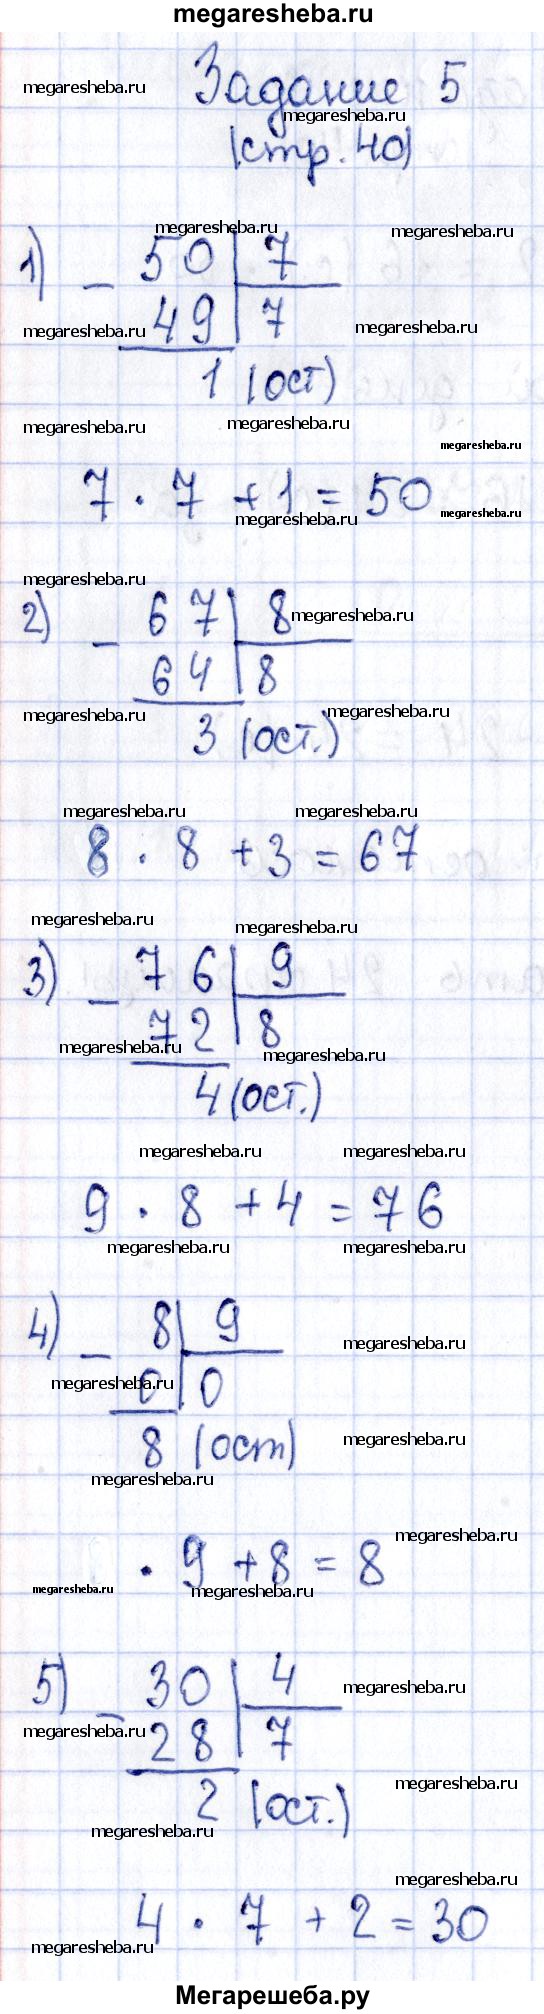 megaresheba.ru
Задание 5
(стр. 40)
1) - 50 | 7
49 | 7
1 (ост)
7 · 7 + 1 = 50
2) - 67 | 8
64 | 8
3 (ост.)
8 · 8 + 3 = 67
3) - 76 | 9
72 | 8
4 (ост.)
9 · 8 + 4 = 76
4) - 8 | 9
0 | 0
8 (ост)
· 9 + 8 = 8
5) - 30 | 4
28 | 7
2 (ост.)
4 · 7 + 2 = 30
Мегарешеба.ру